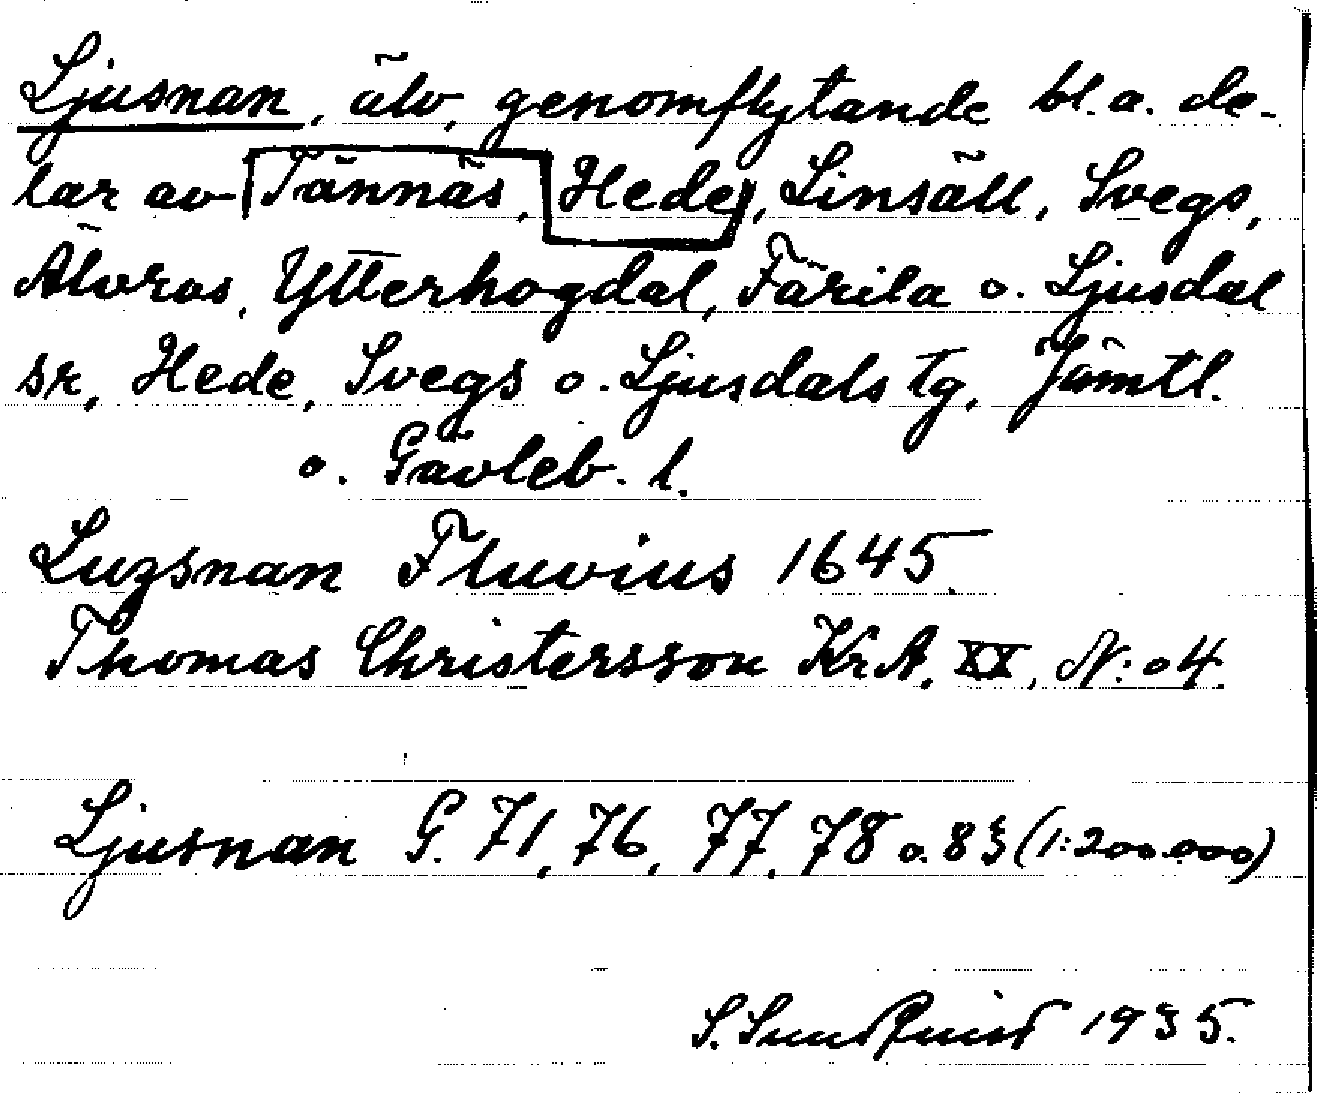 Ljusnan, älv, genomflytande bl.a. de-
lar av Tännäs, Hede, Linsäll, Svegs,
Älvros, Ytterhogdal, Färila o. Ljusdal
sr, Hede, Svegs o. Ljusdals tg, Jämtl.
o. Gävleb. l.
Luzsnan Fluvius 1645.
Thomas Christersson Kr.A. XX, N:o 4.
Ljusnan G. 71, 76, 77, 78 o. 83 (1:200.000)
S. Sundquist 1935.